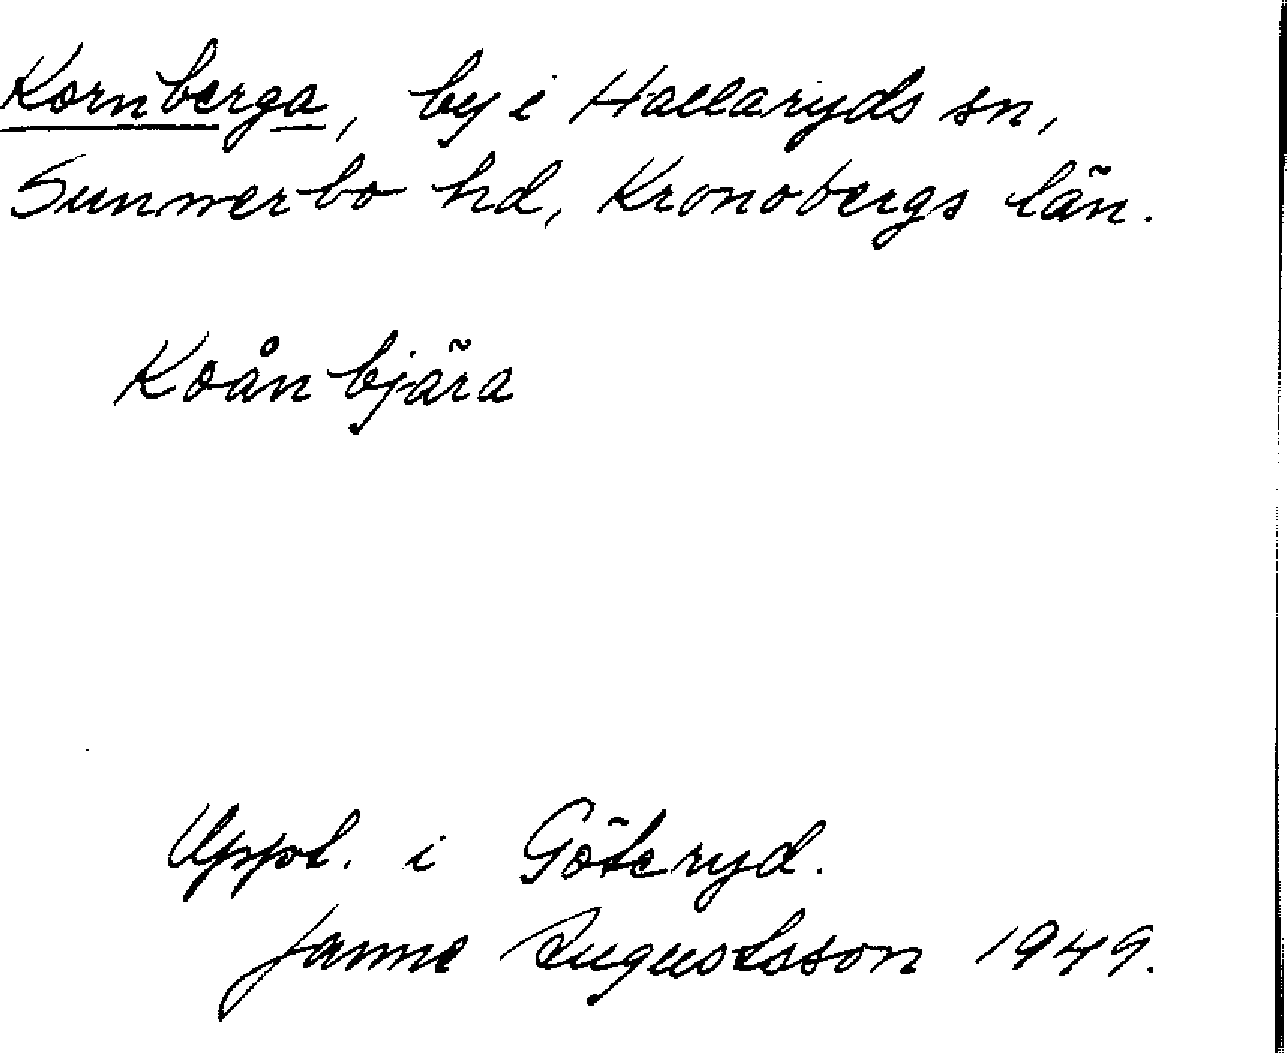 Kornberga, by i Hallaryds sn,
Sunnerbo hd, Kronobergs län.
Koånbjära
Uppt. i Göteryd.
Janne Augustsson 1949.